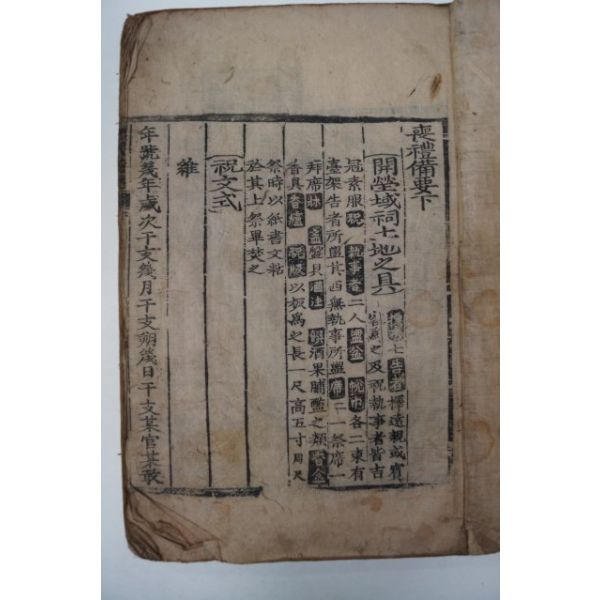 喪禮備要下
開塋域祠土地之具
七告者擇遠親或賓
爲之及祝執事者皆吉
冠素服祝執事者二人盥盆帨巾各二東有
臺架告者所盥其西無執事所盥席二一祭席一
拜席牀盞盤具酒注卓酒果脯醢之類香盒
香具香爐祝版以板爲之長一尺高五寸周尺
祭時以紙書文粘
於其上祭畢焚之
祝文式
維
年號幾年歲次干支幾月干支朔幾日干支某官某敢